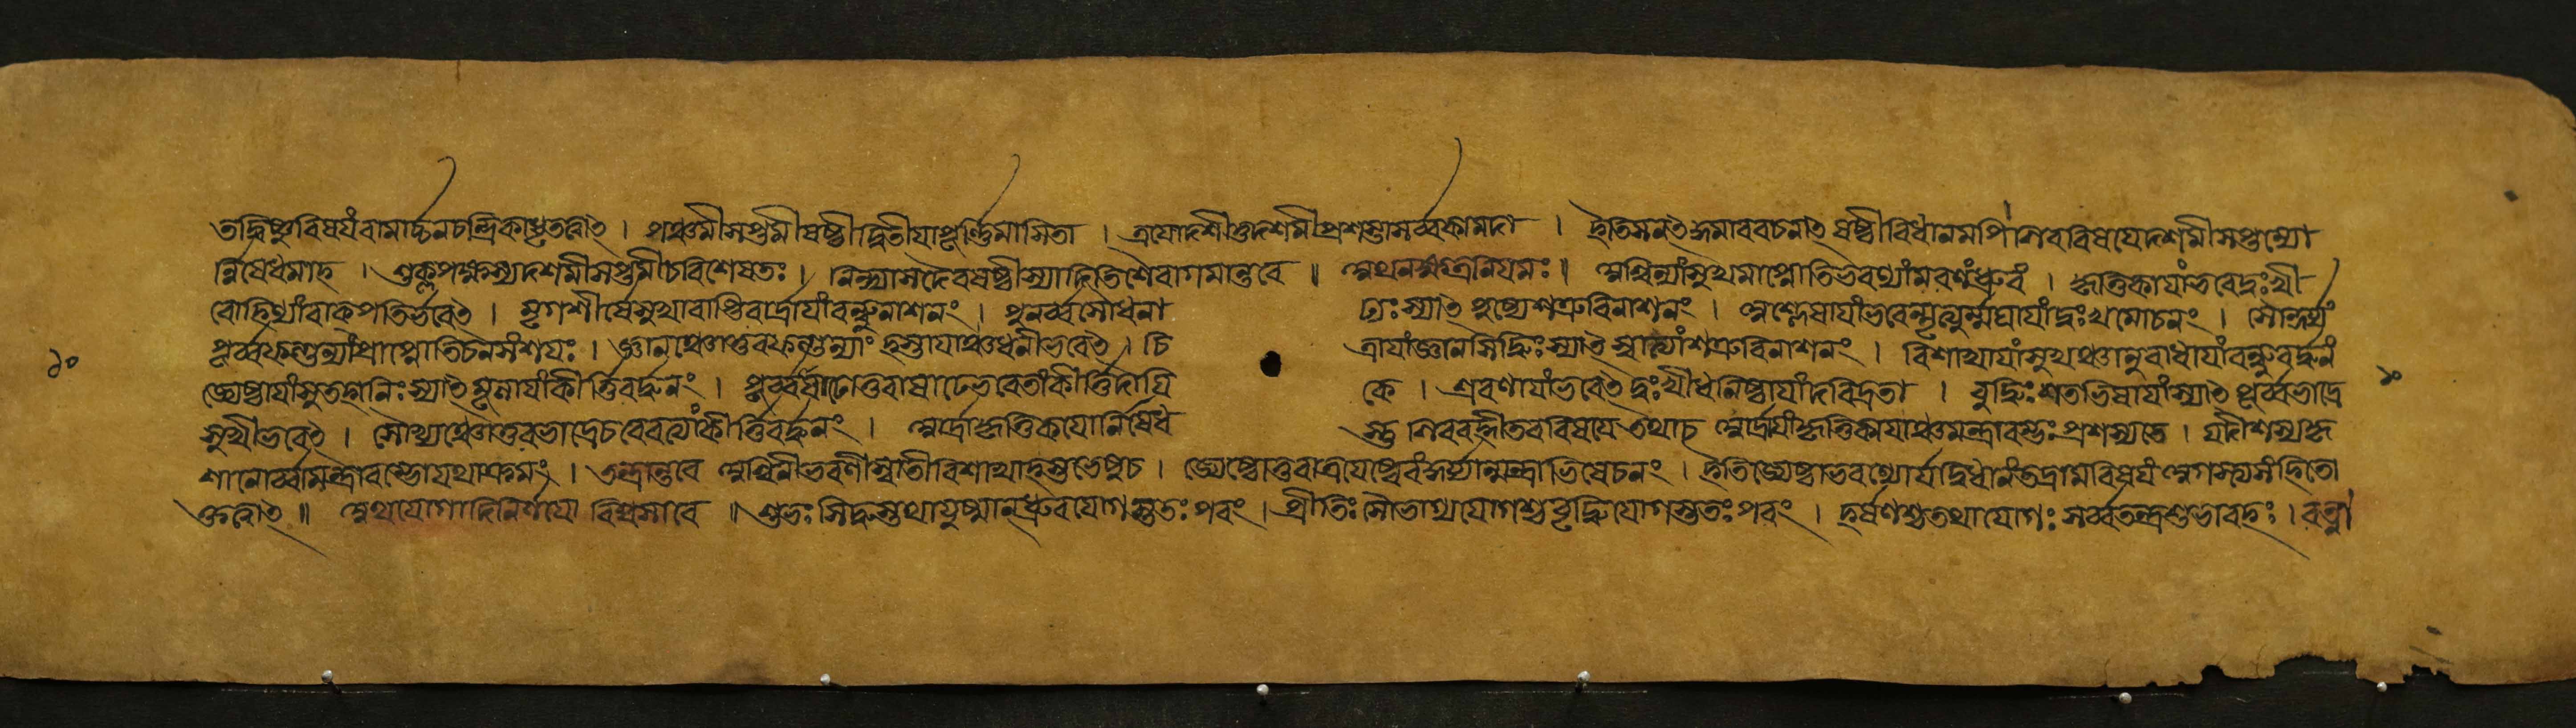 তদ্বিষ্ণুবিষয়ং রামার্চ্চনচন্দ্রিকাধৃতত্বাৎ । পঞ্চমী সপ্তমী ষষ্ঠী দ্বিতীয়া পূর্ণ্ণিমাসিতা । ত্রয়োদশী তু দশমী প্রশস্তা সর্ব্বকামদা । ইতি সনৎকুমারবচনাৎ ষষ্ঠীবিধানমপি শিববিষয়ে দশমীসপ্তম্যো
র্নিষেধমাহ । শুক্লপক্ষস্য দশমী সপ্তমী চ বিশেষতঃ । নিন্দ্যা সদৈব ষষ্ঠী স্যাদিতি শৈবাগমান্তরে ॥ অথ নক্ষত্রনিয়মঃ ॥ অশ্বিন্যাং সুখমাপ্নোতি ভরণ্যাং মরণং ধ্রুবং । কৃত্তিকায়াং ভবেদ্দুঃখী
রোহিণ্যাং বাক্পতির্ভবেৎ । মৃগশীর্ষে সুখাবাপ্তিরার্দ্রায়াং বন্ধুনাশনং । পুনর্ব্বসৌ ধনা ঢ্যঃ স্যাৎ পুষ্যে শত্রুবিনাশনং । অশ্লেষায়াং ভবেন্মৃত্যুর্ম্মঘায়াং দুঃখমোচনং । সৌন্দর্য্যং
পূর্ব্বফল্গুন্যাং প্রাপ্নোতি চ ন সংশয়ঃ । জ্ঞানঞ্চোত্তরফল্গুন্যাং হস্তায়াঞ্চ ধনী ভবেৎ । চি ত্রায়াং জ্ঞানসিদ্ধিঃ স্যাৎ স্বাত্যাং শত্রুবিনাশনং । বিশাখায়াং সুখঞ্চানুরাধায়াং বন্ধুবর্দ্ধনং
জ্যেষ্ঠায়াং সুতহানিঃ স্যাৎ মূলায়াং কীর্ত্তিবর্দ্ধনং । পূর্ব্বাষাঢ়োত্তরাষাঢ়ে ভবেতাং কীর্ত্তিদায়ি কে । শ্রবণায়াং ভবেৎ দুঃখী ধনিষ্ঠায়াং দরিদ্রতা । বুদ্ধিঃ শতভিষায়াং স্যাৎ পূর্ব্বভাদ্রে
সুখী ভবেৎ । সৌখ্যঞ্চোত্তরভাদ্রে চ রেবত্যাং কীর্ত্তিবর্দ্ধনং । অার্দ্রাকৃত্তিকয়োর্নিষেধ স্তু শিববহ্নীতরবিষয়ে তথাচ অার্দ্রায়াং কৃত্তিকায়াঞ্চ মন্ত্রারম্ভঃ প্রশস্যতে । যদীশস্য কৃ
শানোর্ব্বা মন্ত্রারম্ভো যথাক্রমং । তন্ত্রান্তরে অশ্বিনীভরণীস্বাতীবিশাখাহস্তভেষু চ । জ্যেষ্ঠোত্তরাত্রয়েষ্বেবং কুর্য্যান্মন্ত্রাভিষেচনং । ইতি জ্যেষ্ঠাভরণ্যোর্যদ্বিধানং তদ্রামবিষয়ং অগস্ত্যসংহিতো
ক্তত্বাৎ ॥ অথ যোগাদিনির্ণয়ো বিশ্বসারে ॥ শুভঃ সিদ্ধস্তথায়ুষ্মান্ ধ্রুবযোগস্ততঃ পরং । প্রীতিঃ সৌভাগ্যযোগশ্চ বৃদ্ধিযোগস্ততঃ পরং । হর্ষণশ্চ তথা যোগঃ সর্ব্বতন্ত্রশুভাবহঃ ।
১০
১০